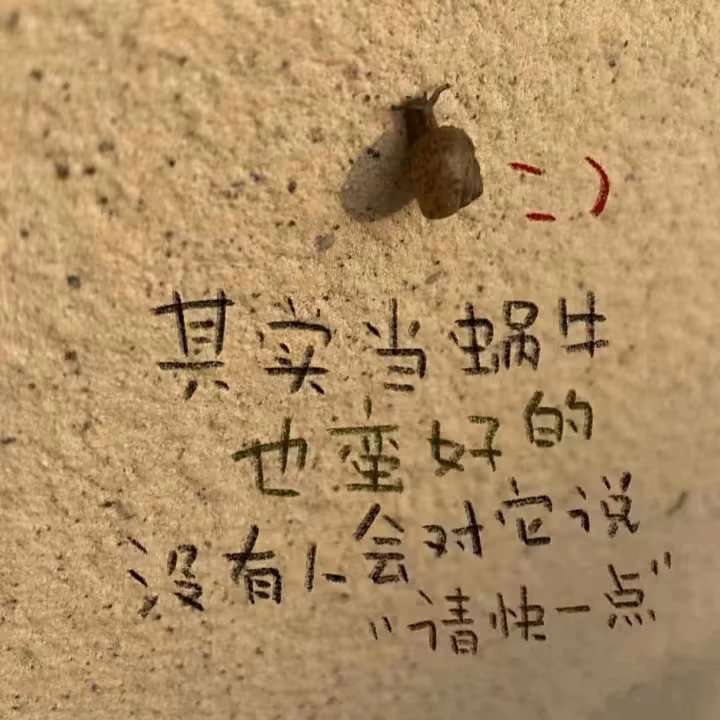 =)
其实当蜗牛
也蛮好的
没有人会对它说
“请快一点”